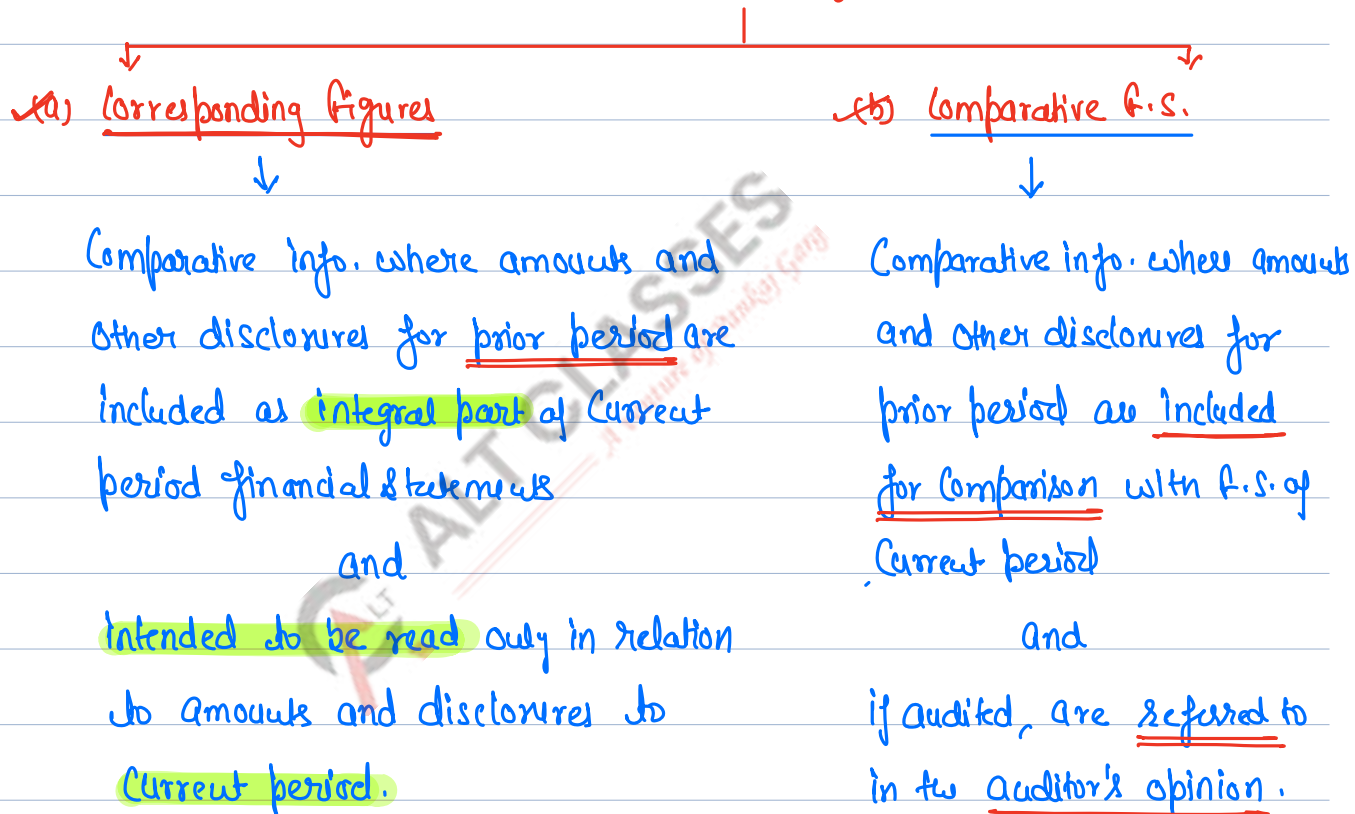 (a) Corresponding figures
Comparative info. where amounts and
other disclosures for prior period are
included as integral part of Current
period financial Statements
and
intended to be read only in relation
to amounts and disclosures to
Current period.
(b) Comparative F.S.
Comparative info. where amounts
and other disclosures for
prior period are included
for Comparison with F.S. of
Current period
and
if audited, are referred to
in the auditor's opinion.
ALT CLASSES
A Venture of Pankaj Garg
ALT